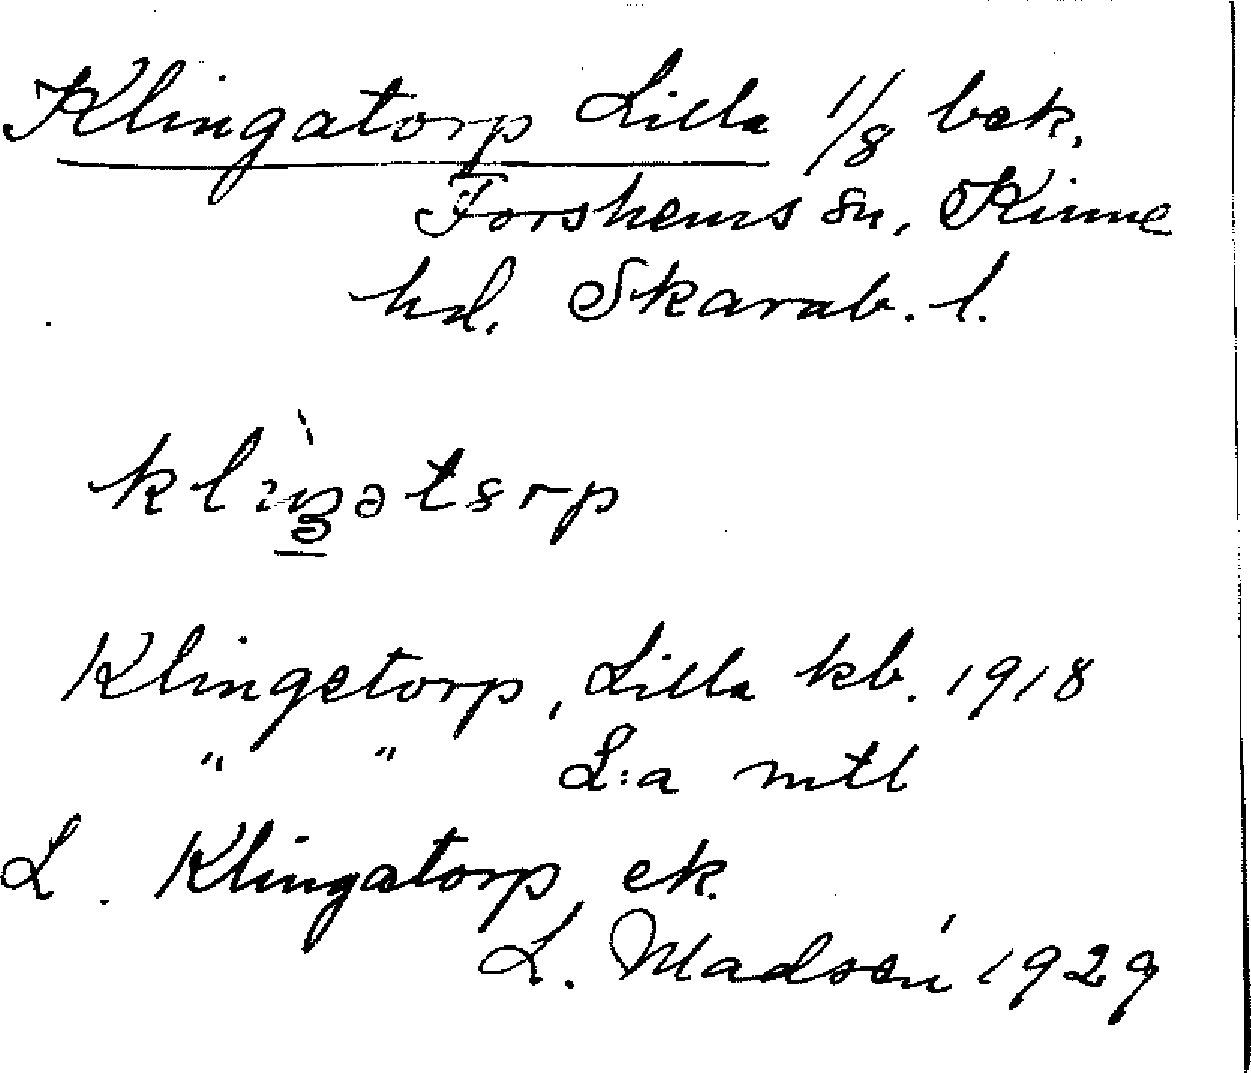 Klingatorp Lilla 1/8 bek.
Forshems sn, Kinne
hd. Skarab. l.
Klingetorp, Lilla kb. 1918
" " L:a mtl
L. Klingatorp ek.
L. Madsén 1929